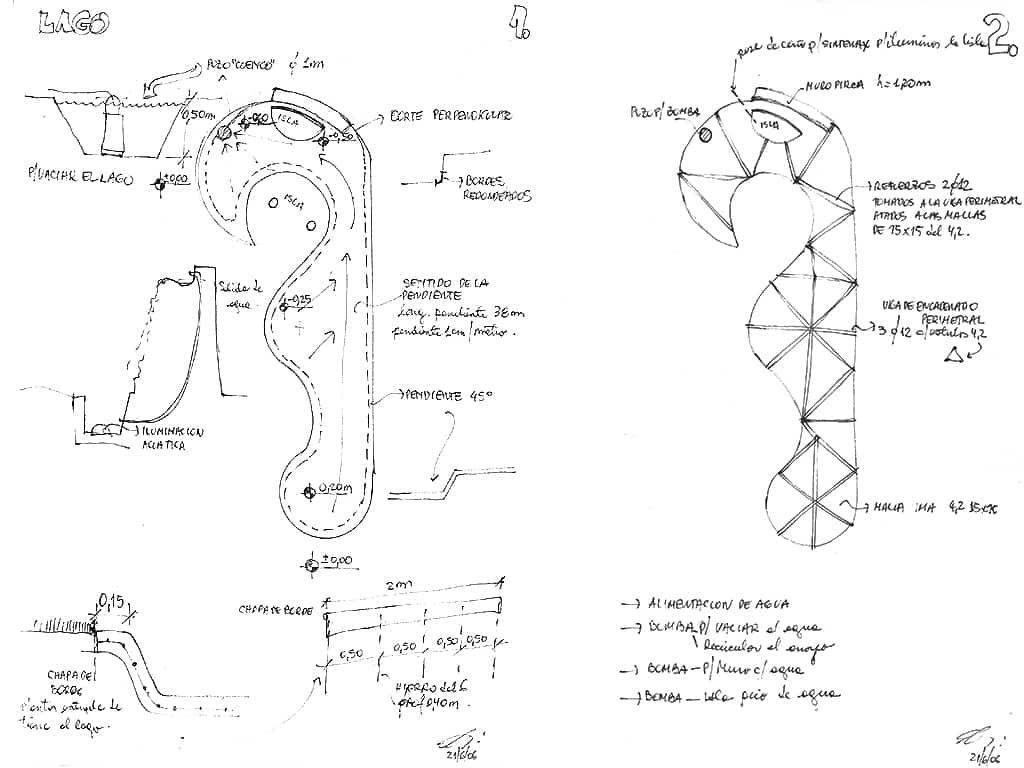 LAGO
1.
POZO "CUENCO" ∮ 1m
0,50m
P/VACIAR EL LAGO
±0,00
-0,50
ISLA
CORTE PERPENDICULAR
BORDES
REDONDEADOS
ISLA
-0,25
Salida de
agua
SENTIDO DE LA
PENDIENTE
long. pendiente 38m
pendiente 1cm/metro.
PENDIENTE 45°
ILUMINACION
ACUATICA
0,20m
±0,00
0,15
CHAPA DE
BORDE
tiene el lago.
CHAPA DE BORDE
2m
0,50 0,50 0,50 0,50
HIERRO del 6
21/6/06
2.
pase de caño p/SINTENAX p/iluminar la isla
MURO PIRCA h=1,20m
POZO P/ BOMBA
ISLA
REFUERZOS 2∮12
TOMADOS A LA VIGA PERIMETRAL
ATADOS A LAS MALLAS
DE 15x15 del 4,2.
VIGA DE ENCADENADO
PERIMETRAL
3 ∮12 c/estribos 4,2
MALLA IMA 4,2 15x15
→ ALIMENTACION DE AGUA
→ BOMBA P/ VACIAR el agua
Recircular el arroyo
→ BOMBA - P/ Muro c/ agua
→ BOMBA - Isla de agua
21/6/06